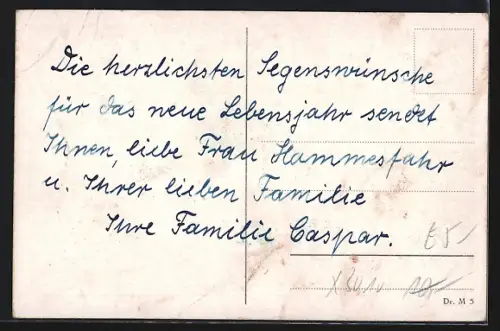 Die herzlichsten Segenswünsche
für das neue Lebensjahr sendet
Ihnen, liebe Frau Hammesfahr
u. Ihrer lieben Familie
Ihre Familie Caspar.
E5-
Dr. M 5